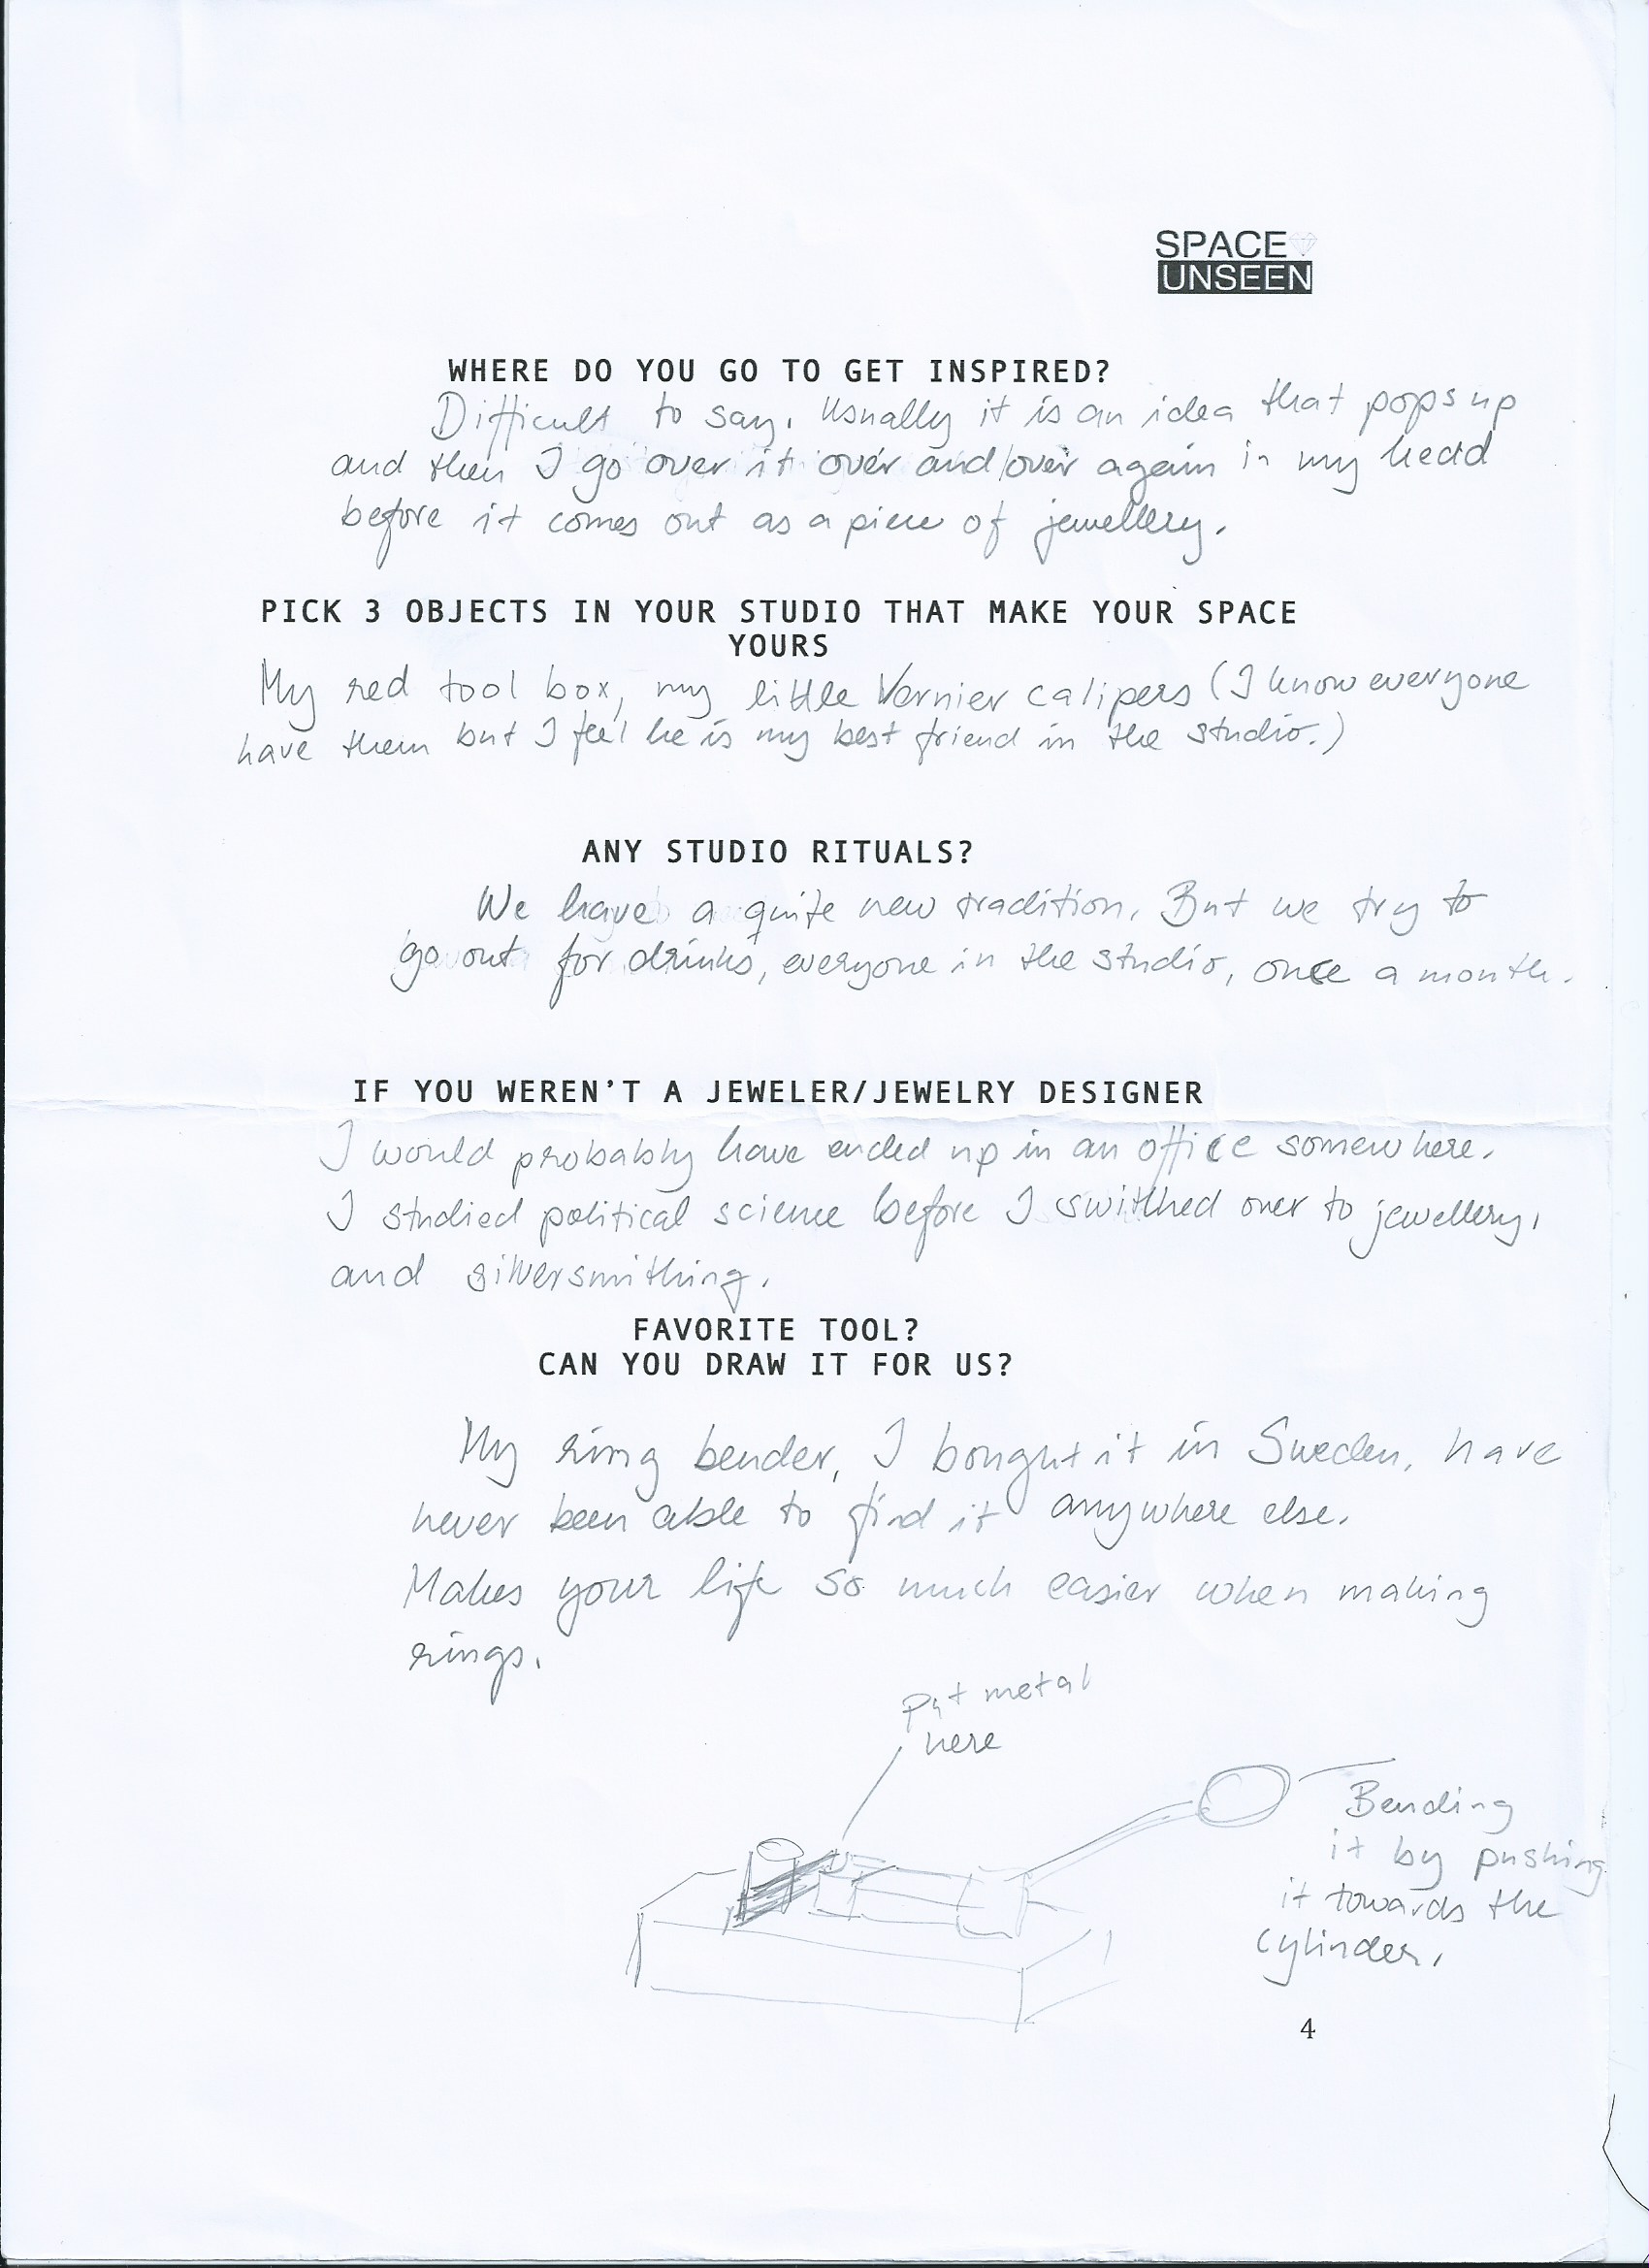 SPACE
UNSEEN
WHERE DO YOU GO TO GET INSPIRED?
Difficult to say. Usually it is an idea that pops up
and then I go over it over and over again in my head
before it comes out as a piece of jewellery.
PICK 3 OBJECTS IN YOUR STUDIO THAT MAKE YOUR SPACE
YOURS
My red tool box, my little Vernier calipers (I know everyone
have them but I feel he is my best friend in the studio.)
ANY STUDIO RITUALS?
We have a quite new tradition. But we try to
go out for drinks, everyone in the studio, once a month.
IF YOU WEREN'T A JEWELER/JEWELRY DESIGNER
I would probably have ended up in an office somewhere.
I studied political science before I swithhed over to jewellery,
and silversmithing.
FAVORITE TOOL?
CAN YOU DRAW IT FOR US?
My ring bender, I bought it in Sweden, have
never been able to find it anywhere else.
Makes your life so much easier when making
rings.
Put metal
here
Bending
it by pushing
it towards the
cylinder.
4